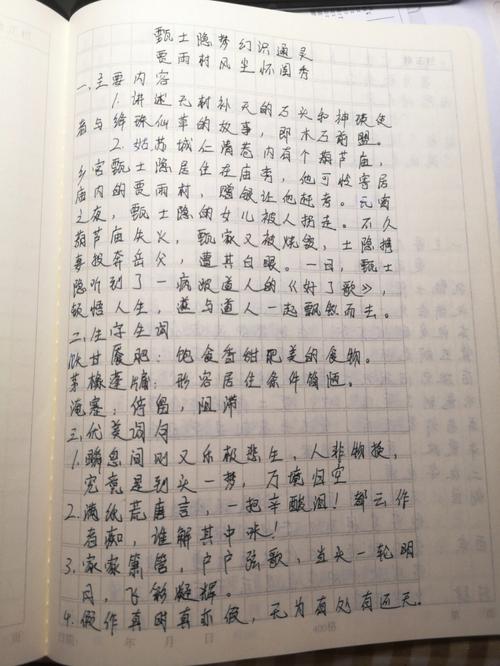 甄士隐梦幻识通灵
贾雨村风尘怀闺秀
一.主要内容
1.讲述无材补天的石头和神瑛侍
者与绛珠仙草的故事,即木石前盟。
2.姑苏城仁清巷内有个葫芦庙,
乡宦甄士隐居住在庙旁,他可怜寄居
庙内的贾雨村,赠银让他赶考。元宵
之夜,甄士隐的女儿被人拐走。不久
葫芦庙失火,甄家又被烧毁,士隐携
妻投奔岳父,遭其白眼。一日,甄士
隐听到了一病跛道人的《好了歌》,
顿悟人生,遂与道人一起飘然而去。
二.生字生词
饫甘餍肥:饱食香甜肥美的食物。
茅椽蓬牖:形容居住条件简陋。
淹蹇:停留,阻滞
三.优美词句
1.瞬息间则又乐极悲生,人非物换,
究竟是到头一梦,万境归空
2.满纸荒唐言,一把辛酸泪!都云作
者痴,谁解其中味!
3.家家箫管,户户弦歌,当头一轮明
月,飞彩凝辉。
4.假作真时真亦假,无为有处有还无。
日期: 年 月 日 400格